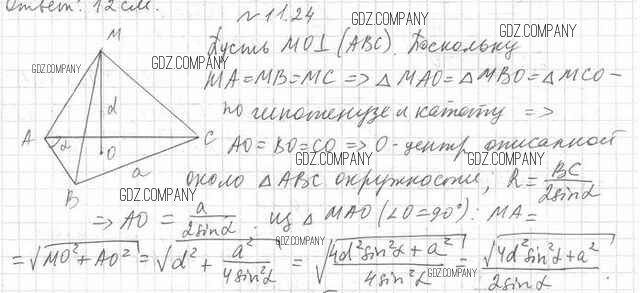 Ответ: 12 см.
№ 11.24
GDZ.COMPANY
GDZ.COMPANY
M
Пусть MO⊥(ABC). Поскольку
GDZ.COMPANY
GDZ.COMPANY
MA=MB=MC => △MAO=△MBO=△MCO-
d
по гипотенузе и катету =>
A α O C
AO=BO=CO => O-центр описанной
GDZ.COMPANY
GDZ.COMPANY
B a
около △ABC окружности; R = BC / 2sinα
GDZ.COMPANY
=> AO = a / 2sinα . из △MAO (∠O=90°): MA=
GDZ.COMPANY
= √MO²+AO² = √d² + a² / 4sin²α = √4d²sin²α + a² / 4sin²α = √4d²sin²α + a² / 2sinα .
GDZ.COMPANY